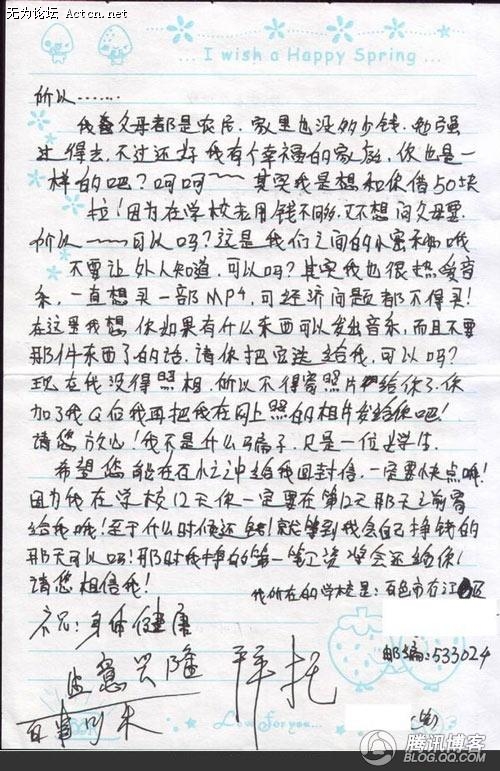 无为论坛 Actcn.net
... I wish a Happy Spring ...
所以……
我父母都是农民，家里也没多少钱，勉强
过得去，不过还好我有个幸福的家庭，你也是一
样的吧？呵呵~~ 其实我是想和你借50块
拉！因为在学校老用钱不够，又不想问父母要
所以——可以吗？这是我们之间的小秘密哦
不要让外人知道，可以吗？其实我也很热爱音
乐，一直想买一部MP4，可经济问题都不得买！
在这里我想，你如果有什么东西可以发出音乐，而且不要
那件东西了的话，请你把它送给我，可以吗？
现在我没得照相，所以不得寄照片给你了，你
加了我Q后我再把我在网上照的相片发给你吧！
请您放心！我不是什么骗子，只是一位学生
希望您能在百忙之中给我回封信，一定要快点哦！
因为我在学校12天你一定要在第12天那天之前寄
给我哦！至于什么时候还钱！就等到我会自己挣钱的
那天可以吗！那时我挣的第一笔工资将会还给你！
请您相信我！
我所在的学校是：百色市右江区
祝：身体健康
生意兴隆
百事可乐
拜托
邮编：533024
Love for you...
腾讯博客
BLOG.QQ.COM